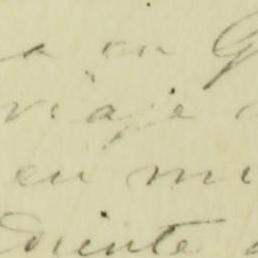 a en G
viaje
en mi
diente